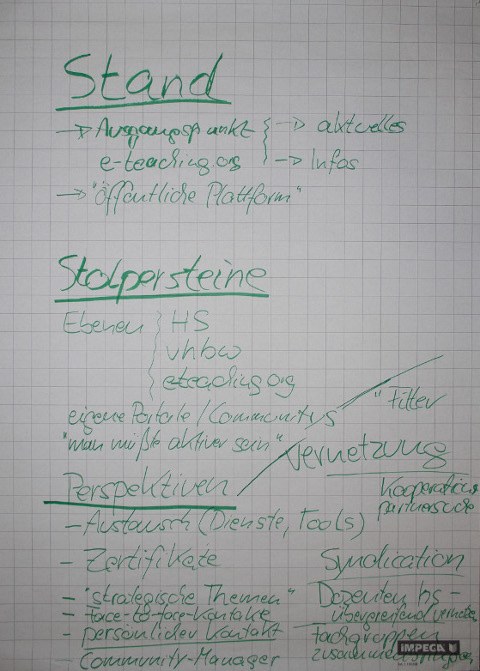 Stand
→ Ausgangspunkt → aktuelles
e-teaching.org → Infos
→ "öffentliche Plattform"
Stolpersteine
Ebenen HS
vhbw
eteaching.org
eigene Portale / Communitys
"Filter
"man müßte aktiver sein"
Vernetzung
Kooperations
partnersuche
Perspektiven
- Austausch (Dienste, Tools)
- Zertifikate
Syndication
- "strategische Themen"
- face-to-face-Kontakte
- persönlicher Kontakt
Community-Manager
Dozenten hs-
übergreifend
Fachgruppen
IMPEGA